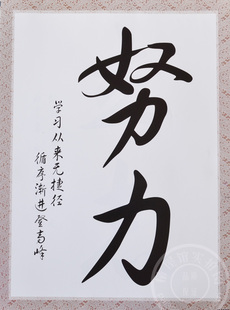 努力
学习从来无捷径
循序渐进登高峰